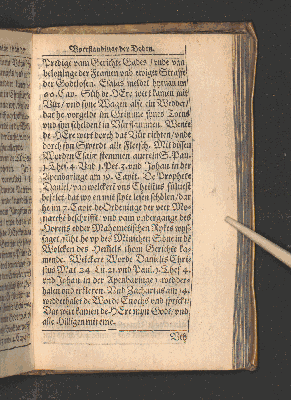 Vperstandinge der Doden.
Predige vam Gerichte Gades / vnde van
belohninge der Framen vnd ewiger Straffe
der Godtlosen. Esaias meldet hervan im
66. Cap. Süh de HEre wert kamen mit
Vür / vnd syne Wagen alse ein Wedder /
dat he vorgelde im Grimme synes Torns
vnd syn scheldent in Vürflammen. Wente
de HEre wert dorch dat Vür richten / vnde
dorch syn Swerdt alle Flesch. Mit dissen
Worden Esaie stemmen auerein S. Paul.
1. Thes. 4. vnd 1. Pet. 3. vnd Johan in der
Apenbaringe am 19. Capit. De Prophete
Daniel / van welckern vns Christus süluest
befelet, dat wy en mit flyte lesen schölen / dar
he im 7. Capit. de Ordeninge der veer Mo-
narchie beschrifft / vnd vam vndergange des
Horens edder Mahometischen Rykes wyß-
saget / süht he vp des Minschen Söne in de
Wolcken des Hemmels thom Gerichte ka-
mende. Wickere Worde Danielis Chri-
stus Mat. 24. Lu. 21. vnd Paul. 1. Thes. 4.
vnd Johan in der Apenbaringe 1. wedder-
halen vnd erkleren. Vnd Zacharias am 14.
wedderhalet de Worde Enochs vnd spricht:
Dar wert kamen de HEre myn Godt / vnd
alle Hilligen mit eme.